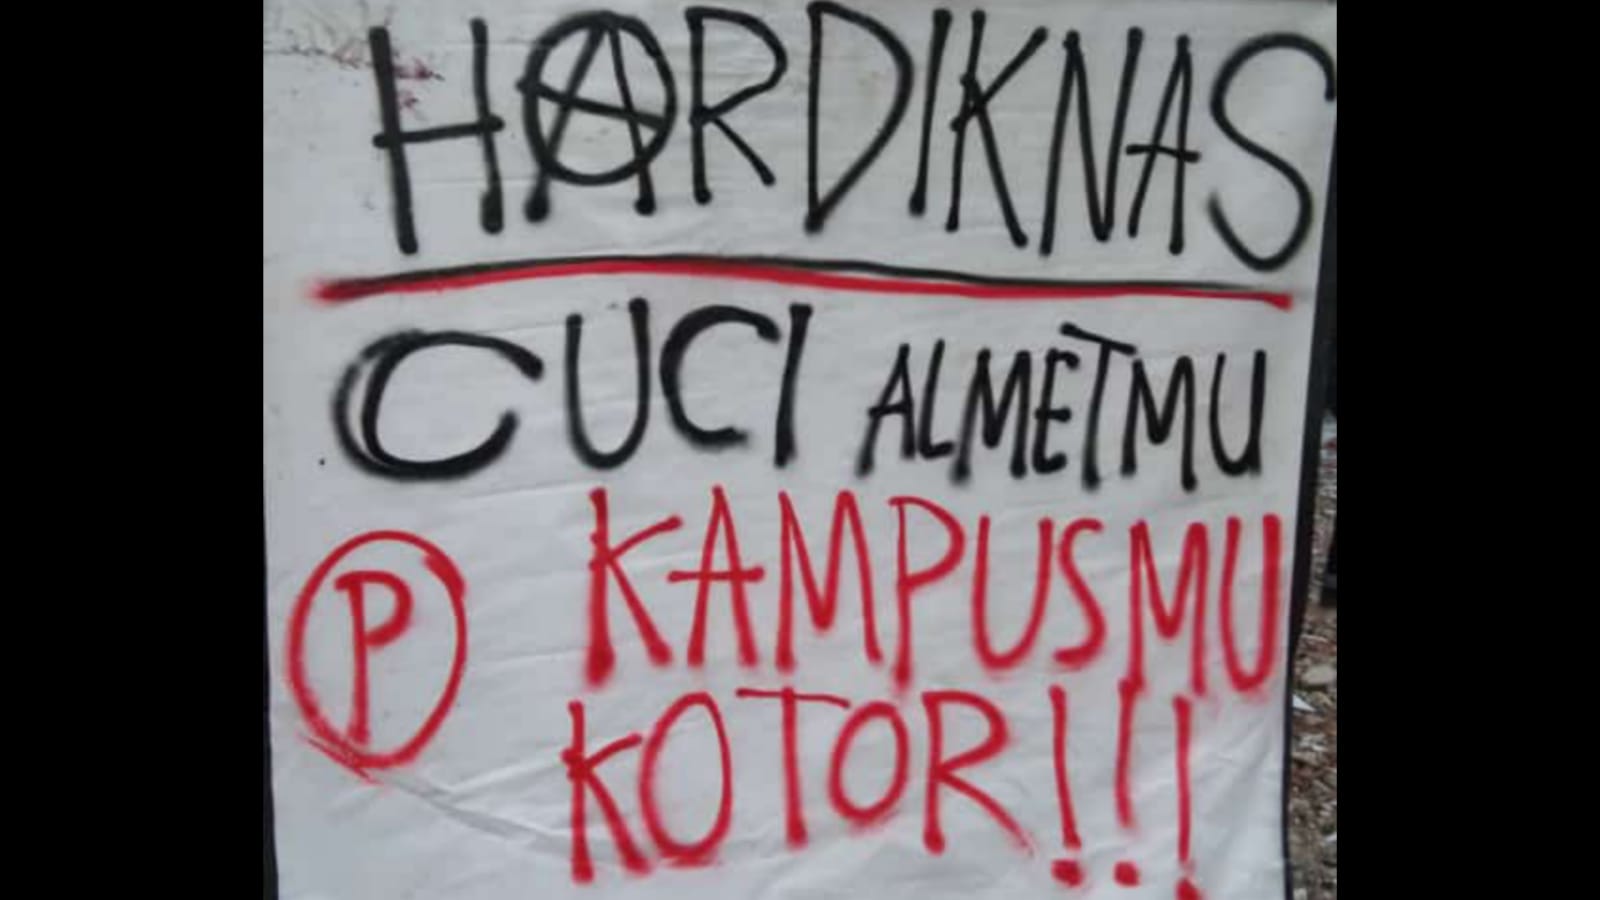 HARDIKNAS
CUCI ALMETMU
P KAMPUSMU
KOTOR!!!